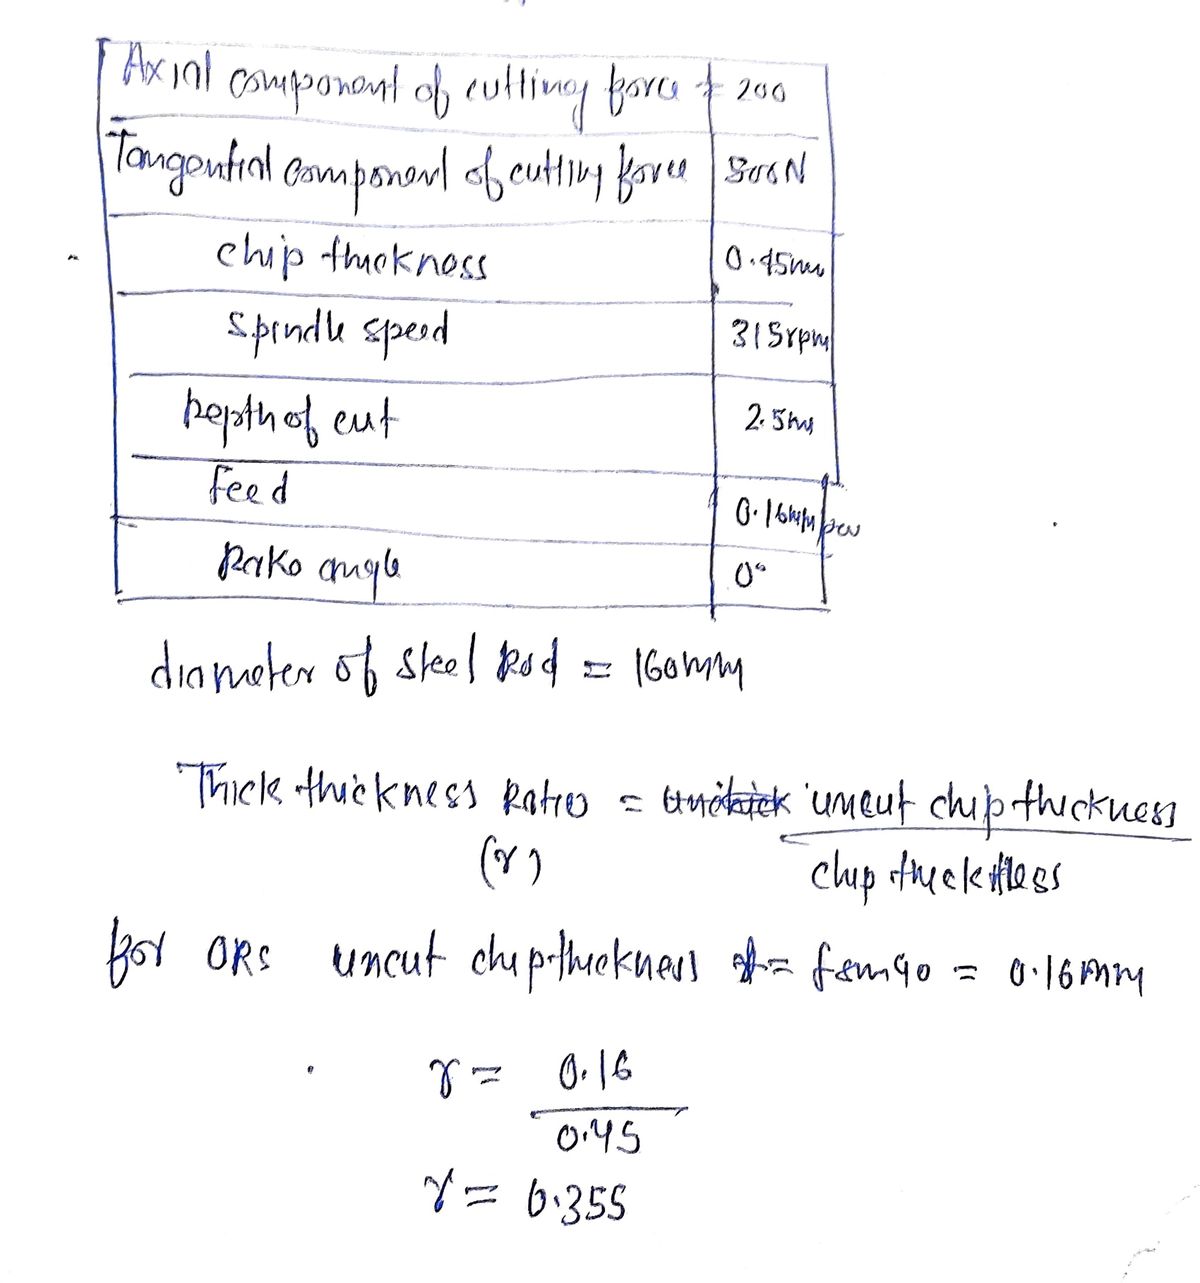 Axial component of cutting force = 200
Tangential component of cutting force 800N
chip thickness 0.45mm
Spindle speed 315rpm
Depth of cut 2.5mm
Feed 0.16mm/rev
Rake angle 0°
diameter of steel Rod = 160mm
Thick thickness Ratio = uncut chip thickness
(r) chip thickness
for ORS uncut chip thickness = f sin 90 = 0.16mm
r = 0.16
0.45
r = 0.355